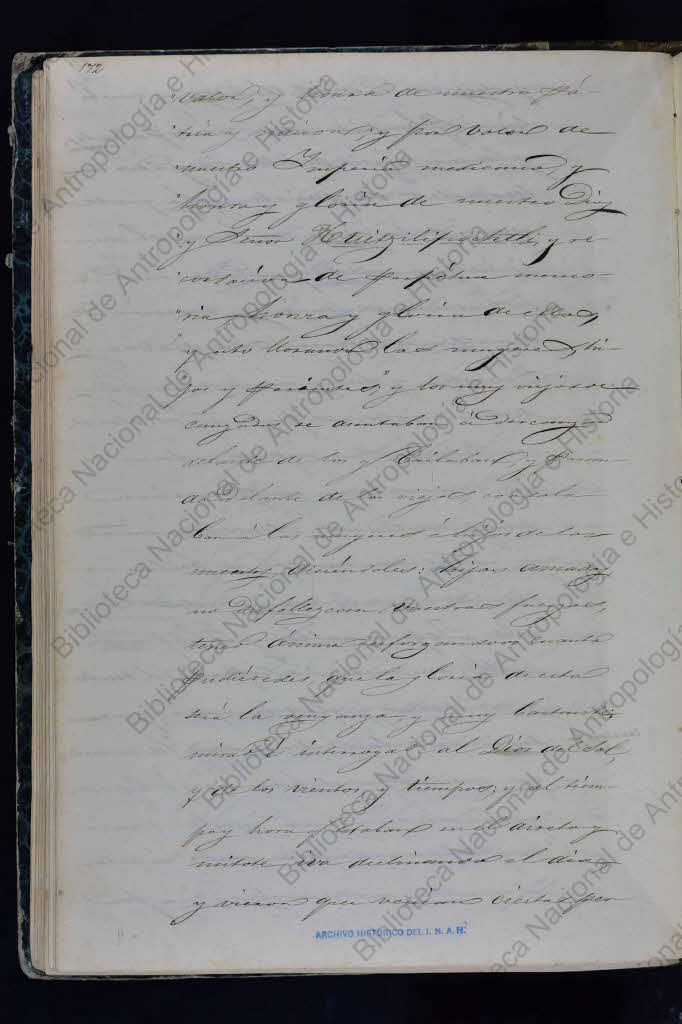 172
"valor, y honra de nuestra Pá-
"tria y nacion, y por valor de
"nuestro Imperio mexicano, y
"honra y gloria de nuestro Dios
"y Señor Huitzilipochtli, y re
"
de perpétua memo-
"ria honra y gloria de ellos,
"y esto lloraron las mugeres, hi-
"jos y parientes", y los muy viejos
cansados se asentaban á descansar
delante de los q bailaban, y
delante de los viejos consola
ban á las mugeres é hijos de los
muertos diciéndoles: hijos amados
no desfallezcan vuestras fuerzas,
tened ánimo esforzandoos cuanto
pudiéredes que la gloria de esta
será la venganza, y muy
mirad é interrogad al Dios del Sol,
y de los vientos, y tiempos; y al tiem-
po y hora q estaban en el areito y
mitote iva declinando el dia,
y vieron que venian ciertas per
ARCHIVO HISTÓRICO DEL I. N. A. H.
Biblioteca Nacional de Antropología e Historia